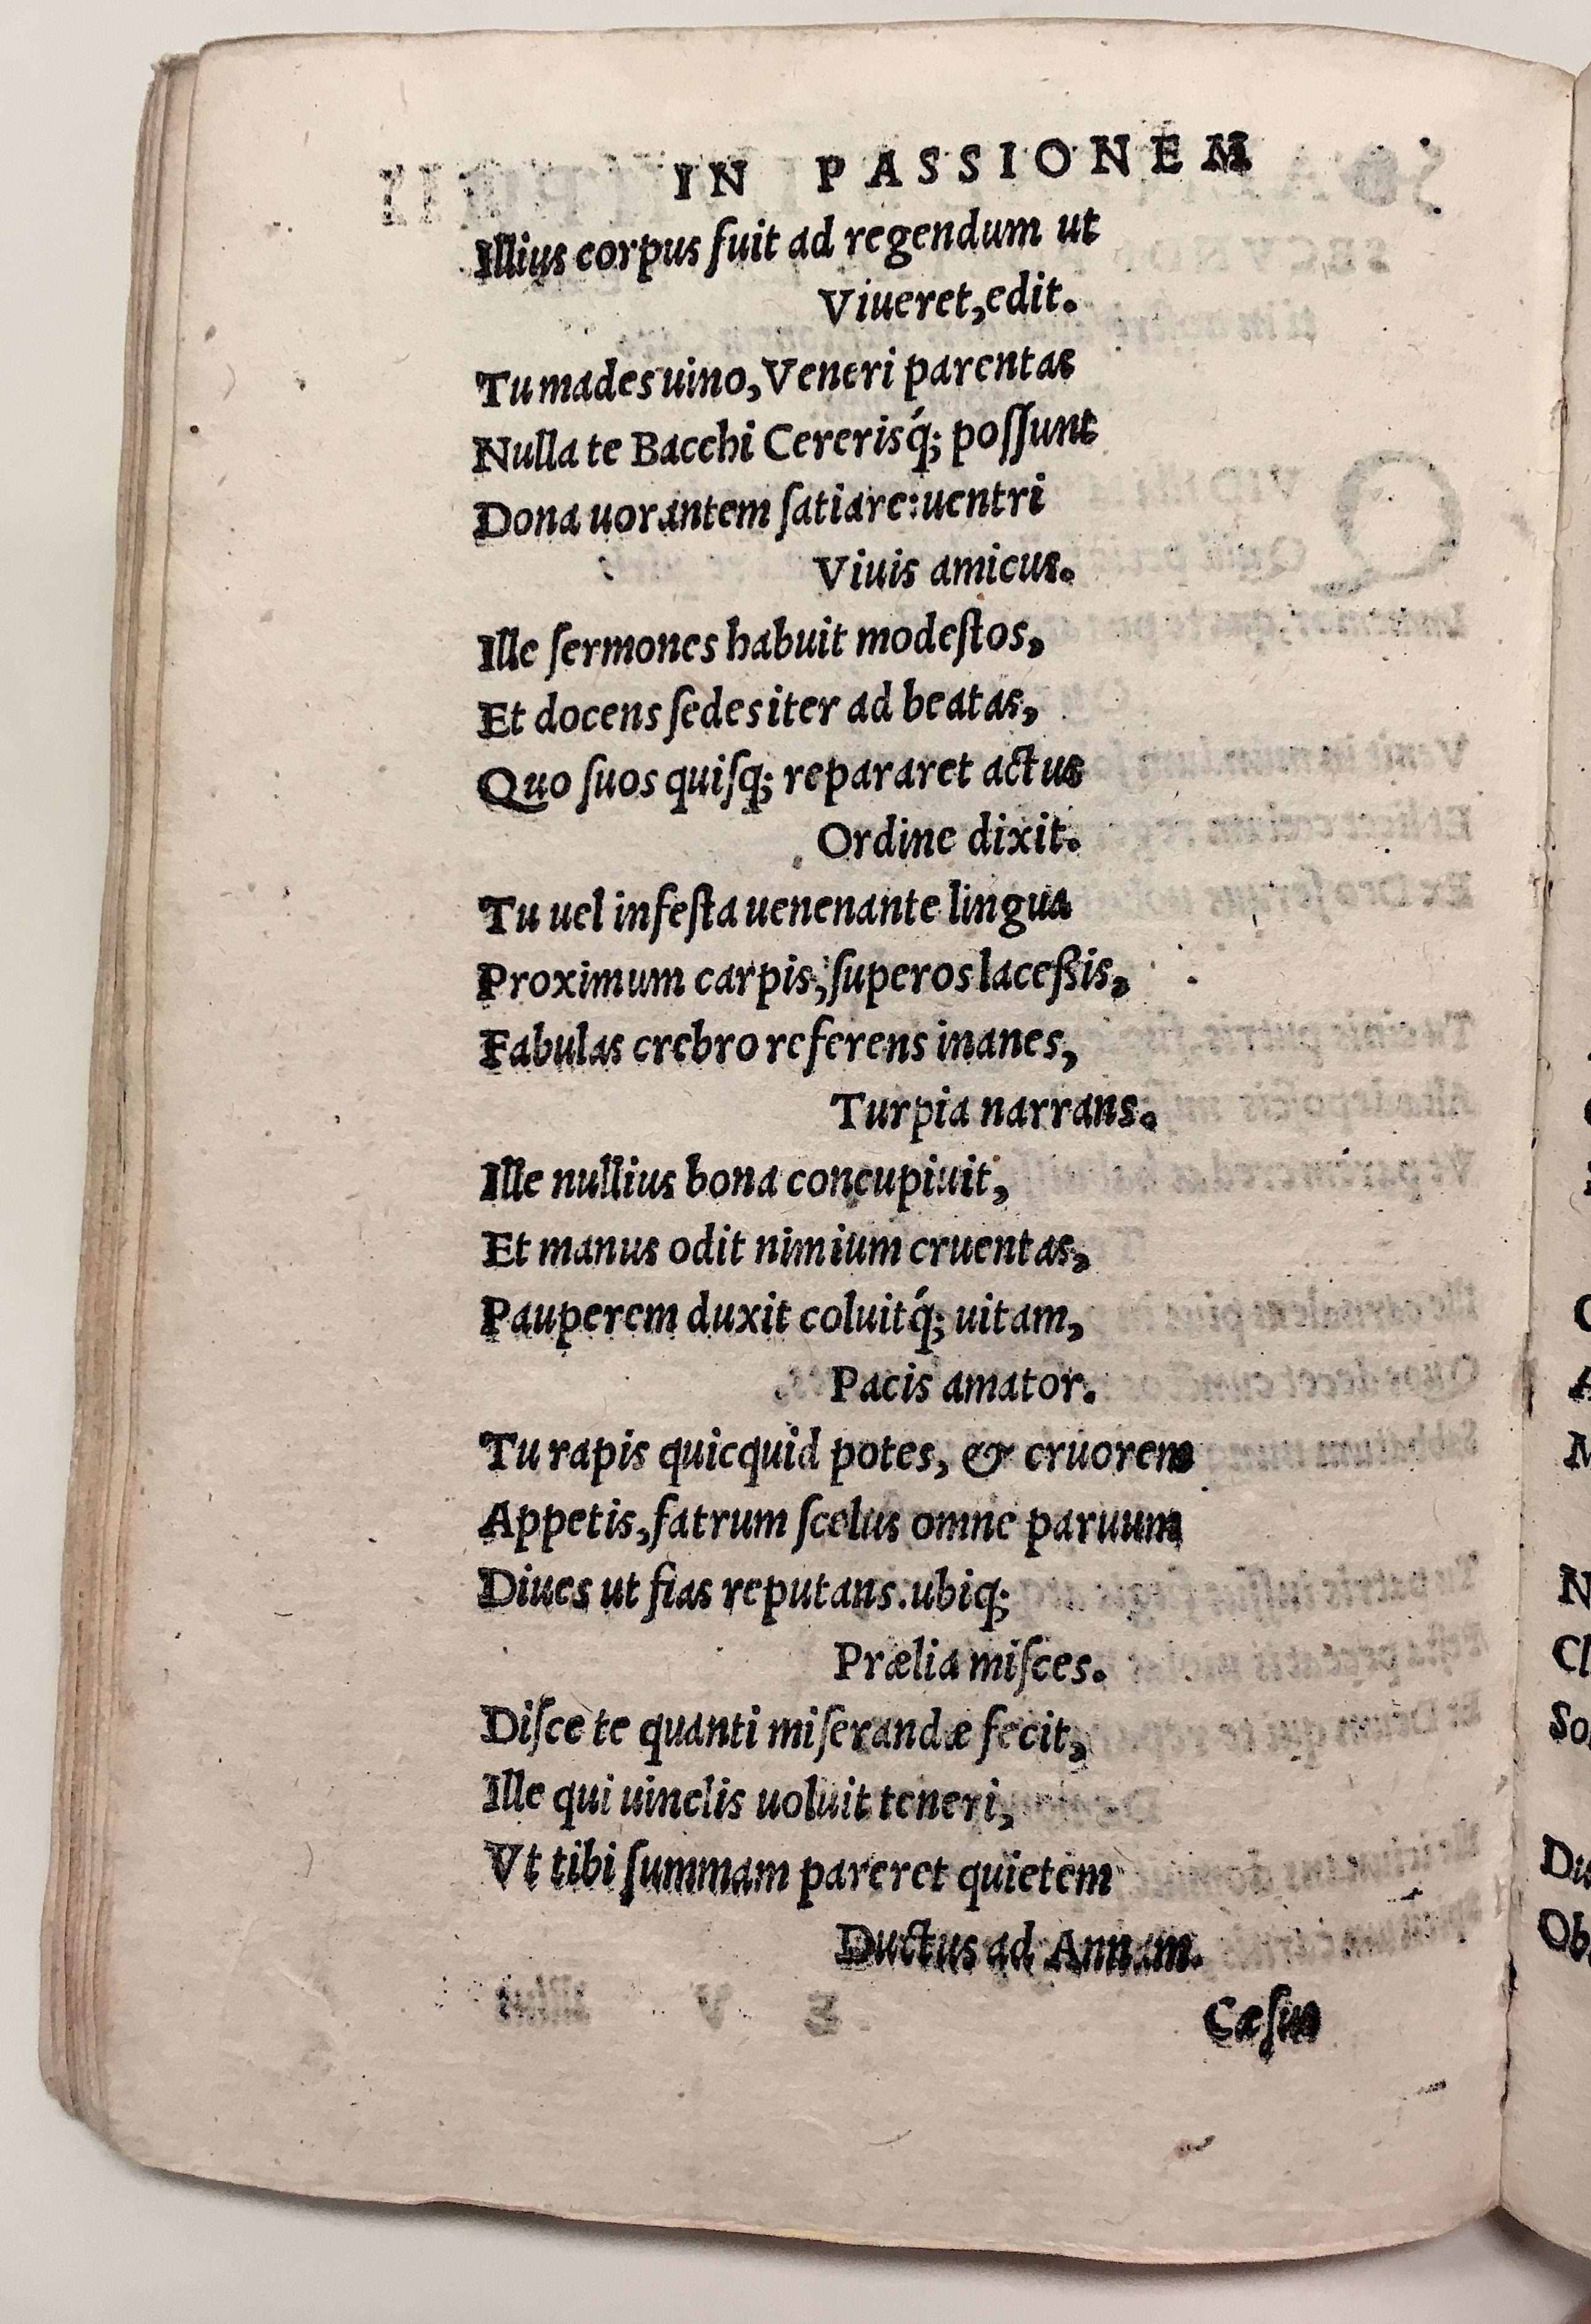 IN PASSIONEM
Illius corpus fuit ad regendum ut
Viueret, edit.
Tu mades uino, Veneri parentas
Nulla te Bacchi Cererisq́; possunt
Dona uorantem satiare: uentri
Viuis amicus.
Ille sermones habuit modestos,
Et docens sedes iter ad beatas,
Quo suos quisq; repararet actus
Ordine dixit.
Tu uel infesta uenenante lingua
Proximum carpis, superos lacessis,
Fabulas crebro referens inanes,
Turpia narrans.
Ille nullius bona concupiuit,
Et manus odit nimium cruentas,
Pauperem duxit coluitq́; uitam,
Pacis amator.
Tu rapis quicquid potes, & cruorem
Appetis, fatrum scelus omne paruum
Diues ut fias reputans. ubiq;
Prælia misces.
Disce te quanti miserandæ fecit,
Ille qui uinclis uoluit teneri,
Vt tibi summam pareret quietem
Ductus ad Annam.
Cæsus